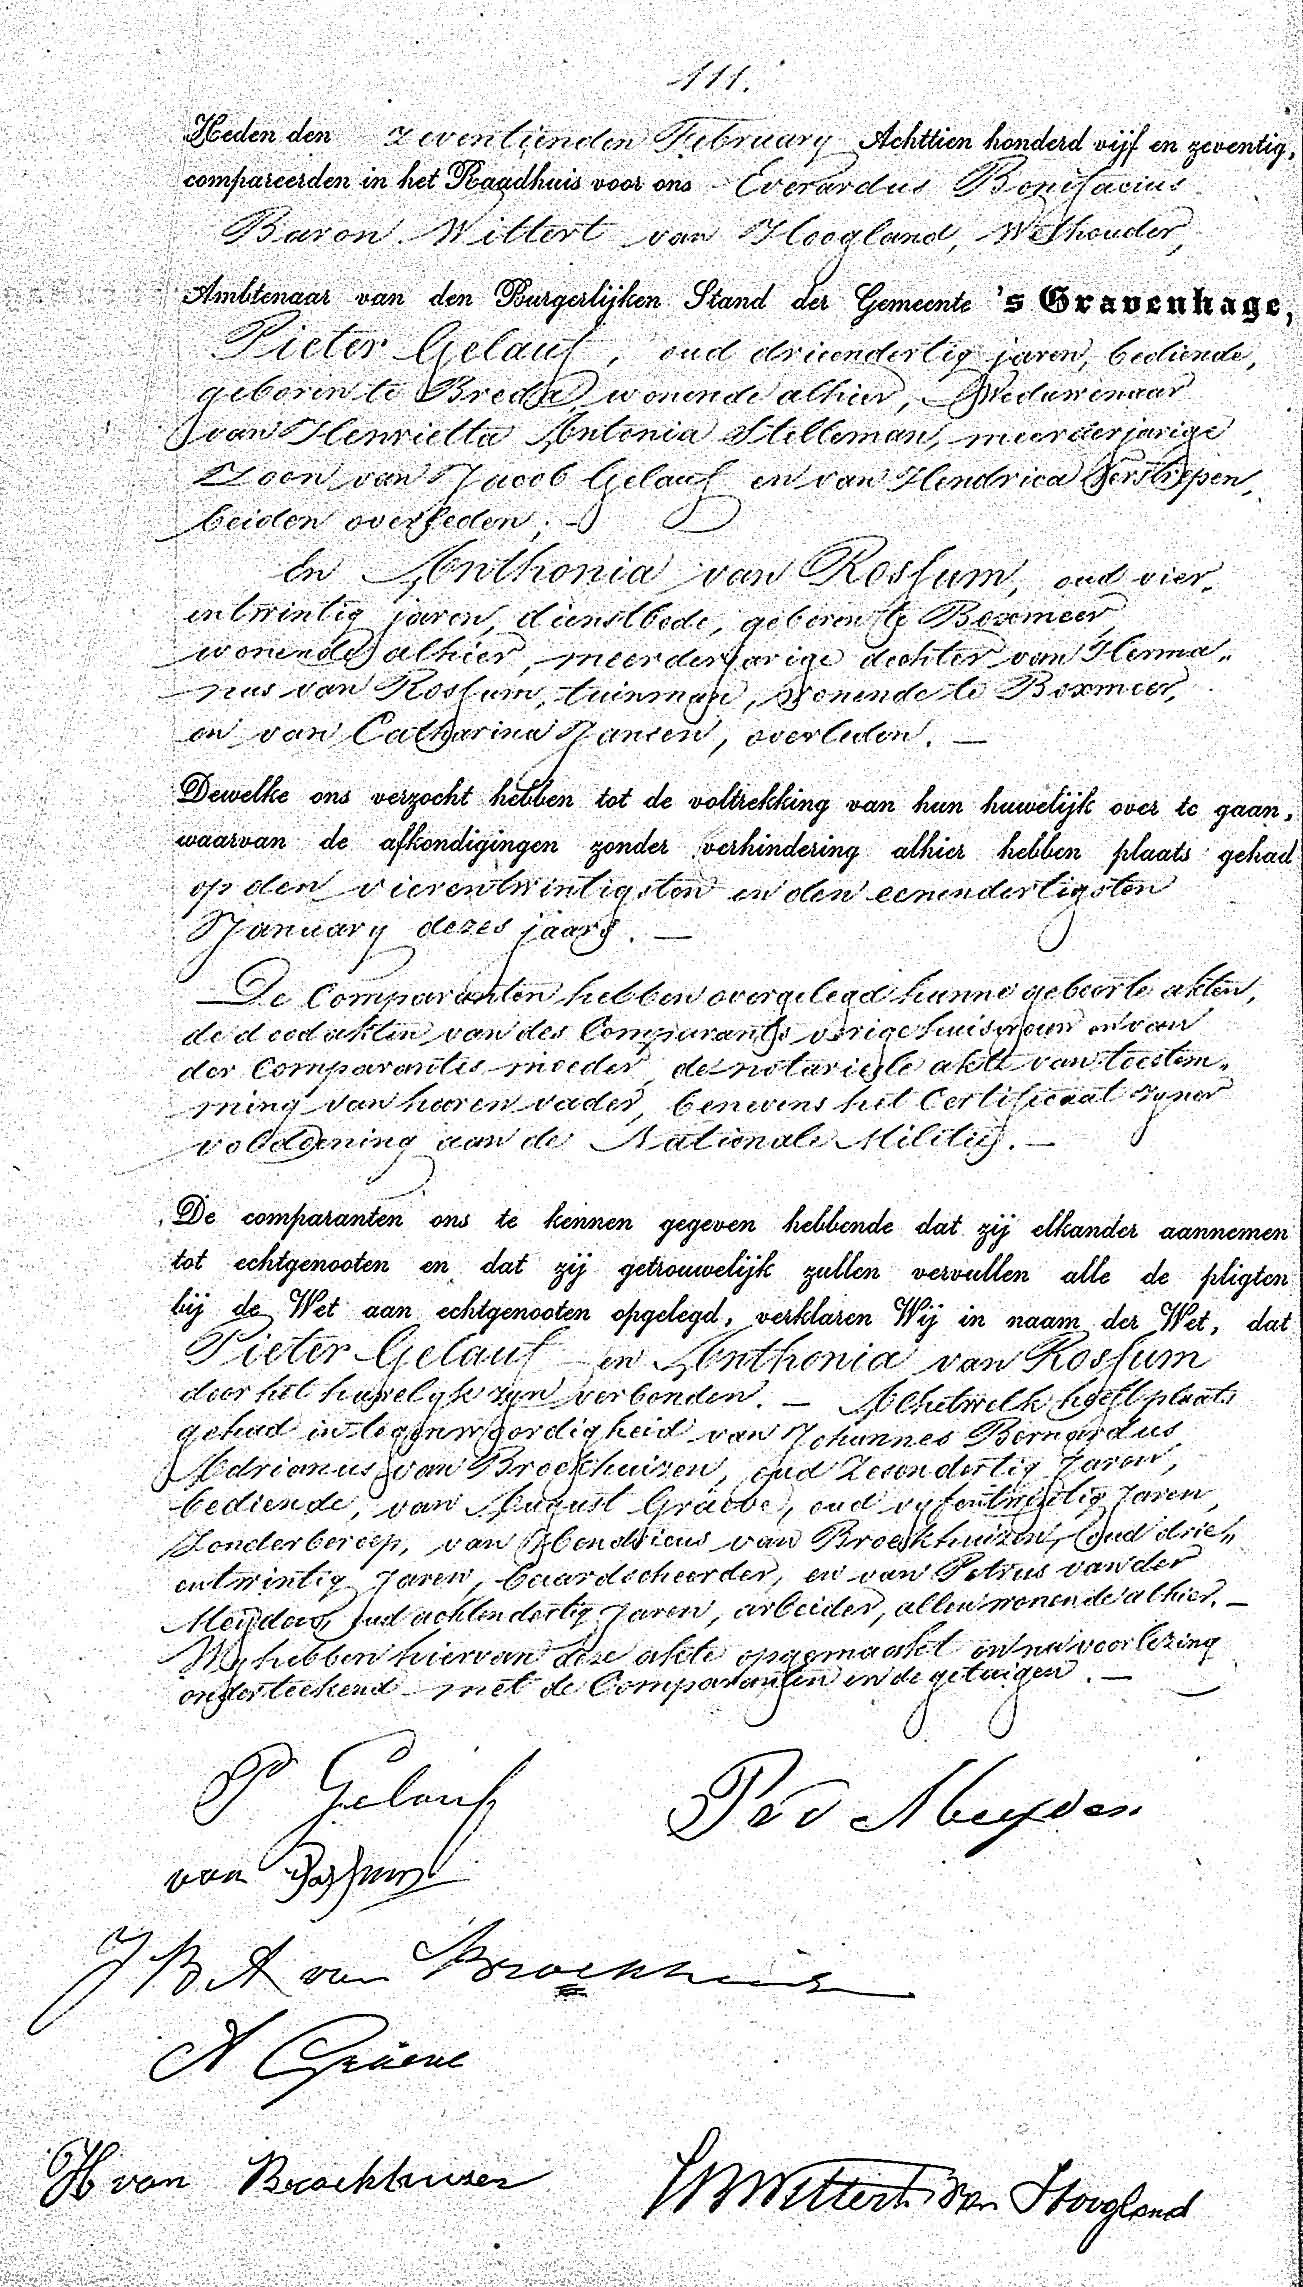 111.
Heden den zeventienden February Achttien honderd vijf en zeventig,
compareerden in het Raadhuis voor ons Everardus Bonifacius
Baron Wittert van Hoogland, Wethouder,
Ambtenaar van den Burgerlijken Stand der Gemeente 's Gravenhage,
Pieter Gelauf, oud drieendertig jaren, bediende,
geboren te Breda, wonende alhier, Weduwenaar
van Henrietta Antonia Stelleman, meerderjarige
Zoon van Jacob Gelauf en van Hendrica Verstrepen,
beiden overleden; –
En Anthonia van Rossum, oud vier„
entwintig jaren, dienstbode, geboren te Boxmeer,
wonende alhier, meerderjarige dochter van Herma„
nus van Rossum, tuinman, wonende te Boxmeer,
en van Catharina Jansen, overleden. —
Dewelke ons verzocht hebben tot de voltrekking van hun huwelijk over te gaan,
waarvan de afkondigingen zonder verhindering alhier hebben plaats gehad
op den vierentwintigsten en den eenendertigsten
January dezes jaars. —
De Comparanten hebben overgelegd hunne geboorte akten,
de dood akten van des Comparants vorige huisvrouw en van
der Comparantes moeder, de notariele akte van toestem„
ming van haren vader, benevens het Certificaat zyner
voldoening aan de Nationale Militie. —
De comparanten ons te kennen gegeven hebbende dat zij elkander aannemen
tot echtgenooten en dat zij getrouwelijk zullen vervullen alle de pligten
bij de Wet aan echtgenooten opgelegd, verklaren Wij in naam der Wet, dat
Pieter Gelauf en Anthonia van Rossum
door het huwelyk zyn verbonden. — Al hetwelk heeft plaats
gehad in tegenwoordigheid van Johannes Bernardus
Adrianus van Broekhuizen, oud Zesendertig Jaren,
bediende, van August Gräeve, oud vyfentwintig Jaren,
Zonder beroep, van Hendricus van Broekhuizen, oud drie„
entwintig Jaren, baardscheerder, en van Petrus van der
Meijden, oud achtendertig Jaren, arbeider, allen wonende alhier. —
Wy hebben hiervan deze akte opgemaakt en na voorlezing
onderteekend met de Comparanten en de getuigen. —
P Gelauf
P v d Meyden
van Rossum
J B A van Broekhuizen
A Gräeve
H van Broekhuizen
EB Wittert van Hoogland